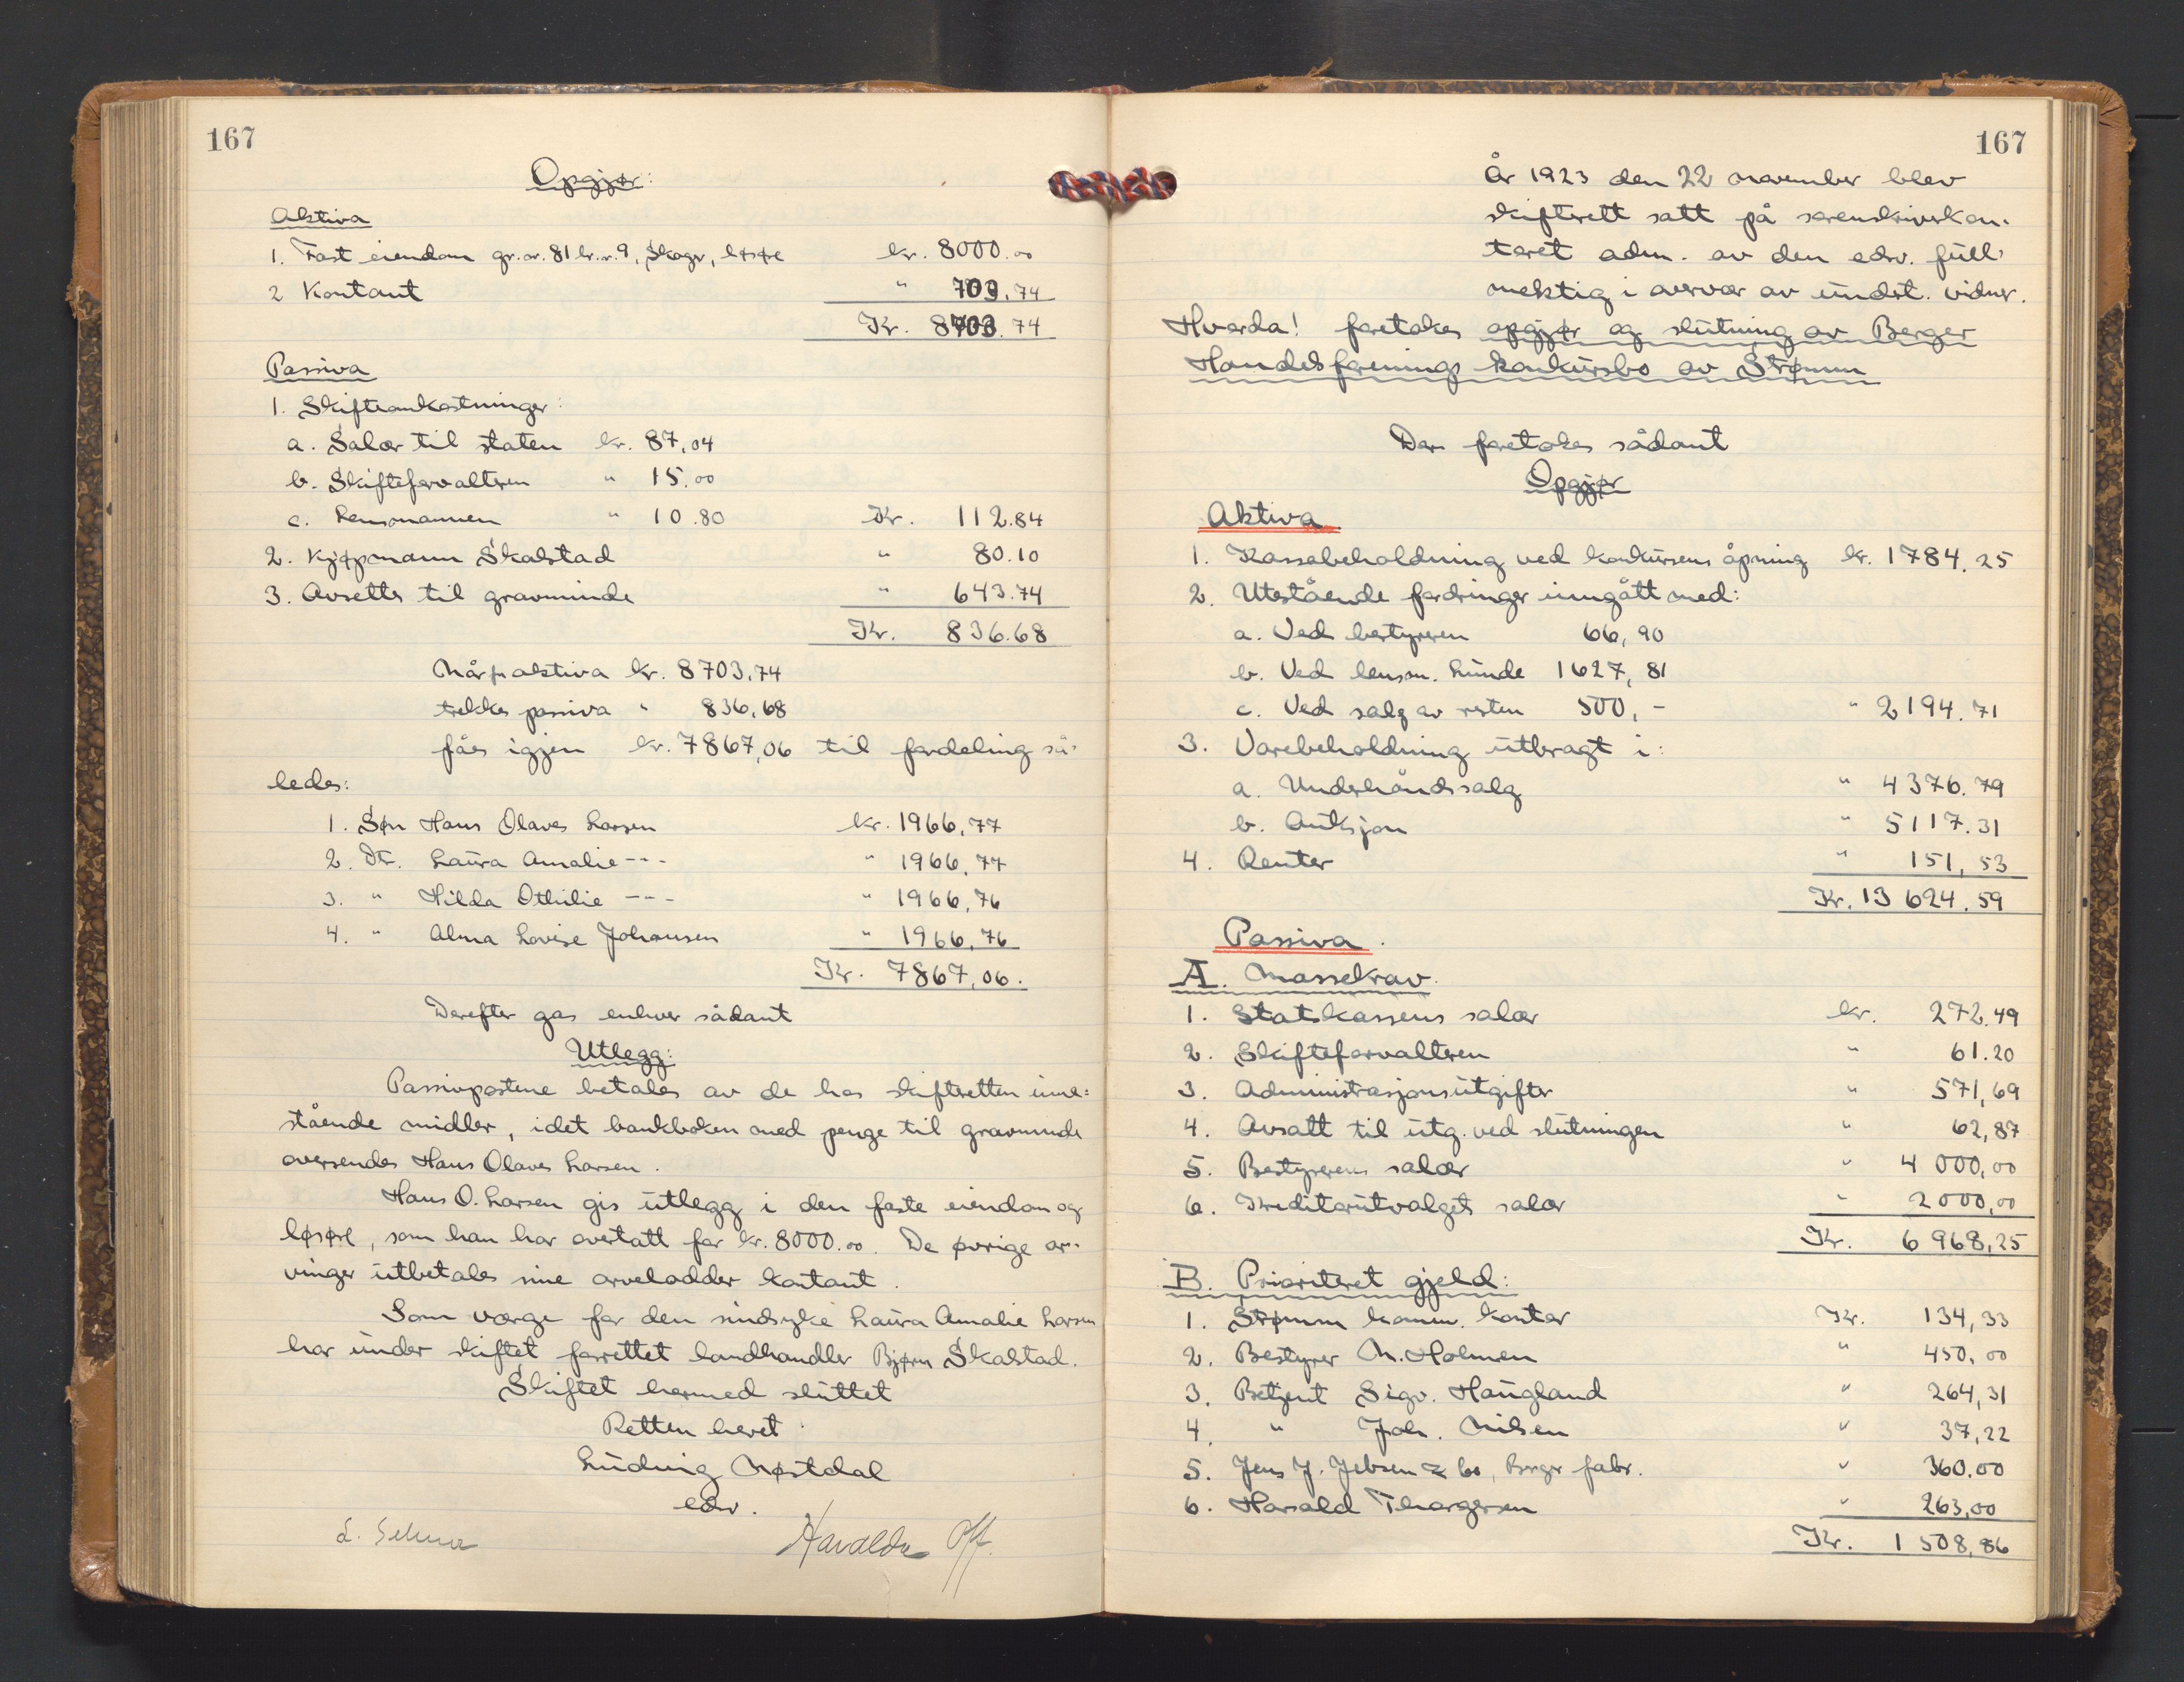 167
Opgjør:
Aktiva
1. Fast eiendom gr.nr. 81 br.nr. 9, Skoger, løsøre kr. 8000.00
2 Kontant " 703.74
Kr. 8703.74
Passiva
1. Skifteomkostninger:
a. Salær til staten kr. 87,04
b. Skifteforvalteren " 15.00
c. Lensmannen " 10.80 Kr. 112.84
2. Kjøpmann Skalstad " 80.10
3. Avsettes til gravminde " 643.74
Kr. 836.68
Når fra aktiva kr. 8703,74
trekkes passiva " 836,68
fåes igjen kr. 7867,06 til fordeling så-
ledes:
1. Søn Hans Olaves Larsen kr. 1966,77
2. Dtr. Laura Amalie --- " 1966,77
3. " Hilda Othilie --- " 1966,76
4. " Alma Lovise Johansen " 1966,76
Kr. 7867,06.
Derefter gas enhver sådant
Utlegg:
Passivpostene betales av de hos skifteretten inne=
stående midler, idet bankboken med penge til gravminde
oversendes Hans Olaves Larsen.
Hans O. Larsen gis utlegg i den faste eiendom og
løsøre, som han har overtatt for kr. 8000.00. De øvrige ar-
vinger utbetales sine arvelodder kontant.
Som værge for den sindsyke Laura Amalie Larsen
har under skiftet forrettet landhandler Bjørn Skalstad.
Skiftet hermed sluttet
Retten hevet
Ludvig Møstdal
edsv.
Haralds
167
År 1923 den 22 november blev
skifterett satt på sorenskriverkon-
toret adm. av den edsv. full-
mektig i overvær av undst. vidner.
Hvorda! foretokes opgjør og slutning av Berger
Handelsforenings konkursbo av Strømm
Der foretokes sådant
Opgjør
Aktiva
1. Kassabeholdning ved konkursens åpning kr. 1784.25
2. Utestående fordringer inngått med:
a. Ved bestyreren 66,90
b. Ved lensm. Lunde 1627,81
c. Ved salg av resten 500,- " 2194.71
3. Varebeholdning utbragt i:
a. Underhåndssalg " 4376.79
b. Auksjon " 5117.31
4. Renter " 151,53
Kr. 13 624.59
Passiva.
A. Massekrav.
1. Statskassens salær kr. 272.49
2. Skifteforvalteren " 61.20
3. Administrasjonsutgifter " 571,69
4. Avsatt til utg. ved slutningen " 62,87
5. Bestyrerens salær " 4 000,00
6. Kreditorutvalgets salær " 2 000,00
Kr. 6 968,25
B. Prioritert gjeld:
1. Strømm komm. kontor Kr. 134,33
2. Bestyrer M. Holmen " 450,00
3. Betjent Sigv. Haugland " 264,31
4. " Joh. Nilsen " 37,22
5. Jens J. Jebsen & Co, Berger fabr. " 360.00
6. Harald Thorgersen " 263,00
Kr. 1 508,86